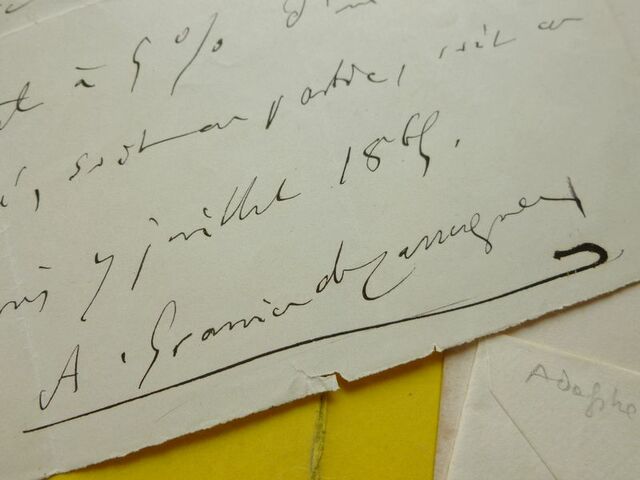 à 5 % d'un
soit en partie, soit en
7 juillet 1865.
A. Granier de Cassagnac
Adolphe